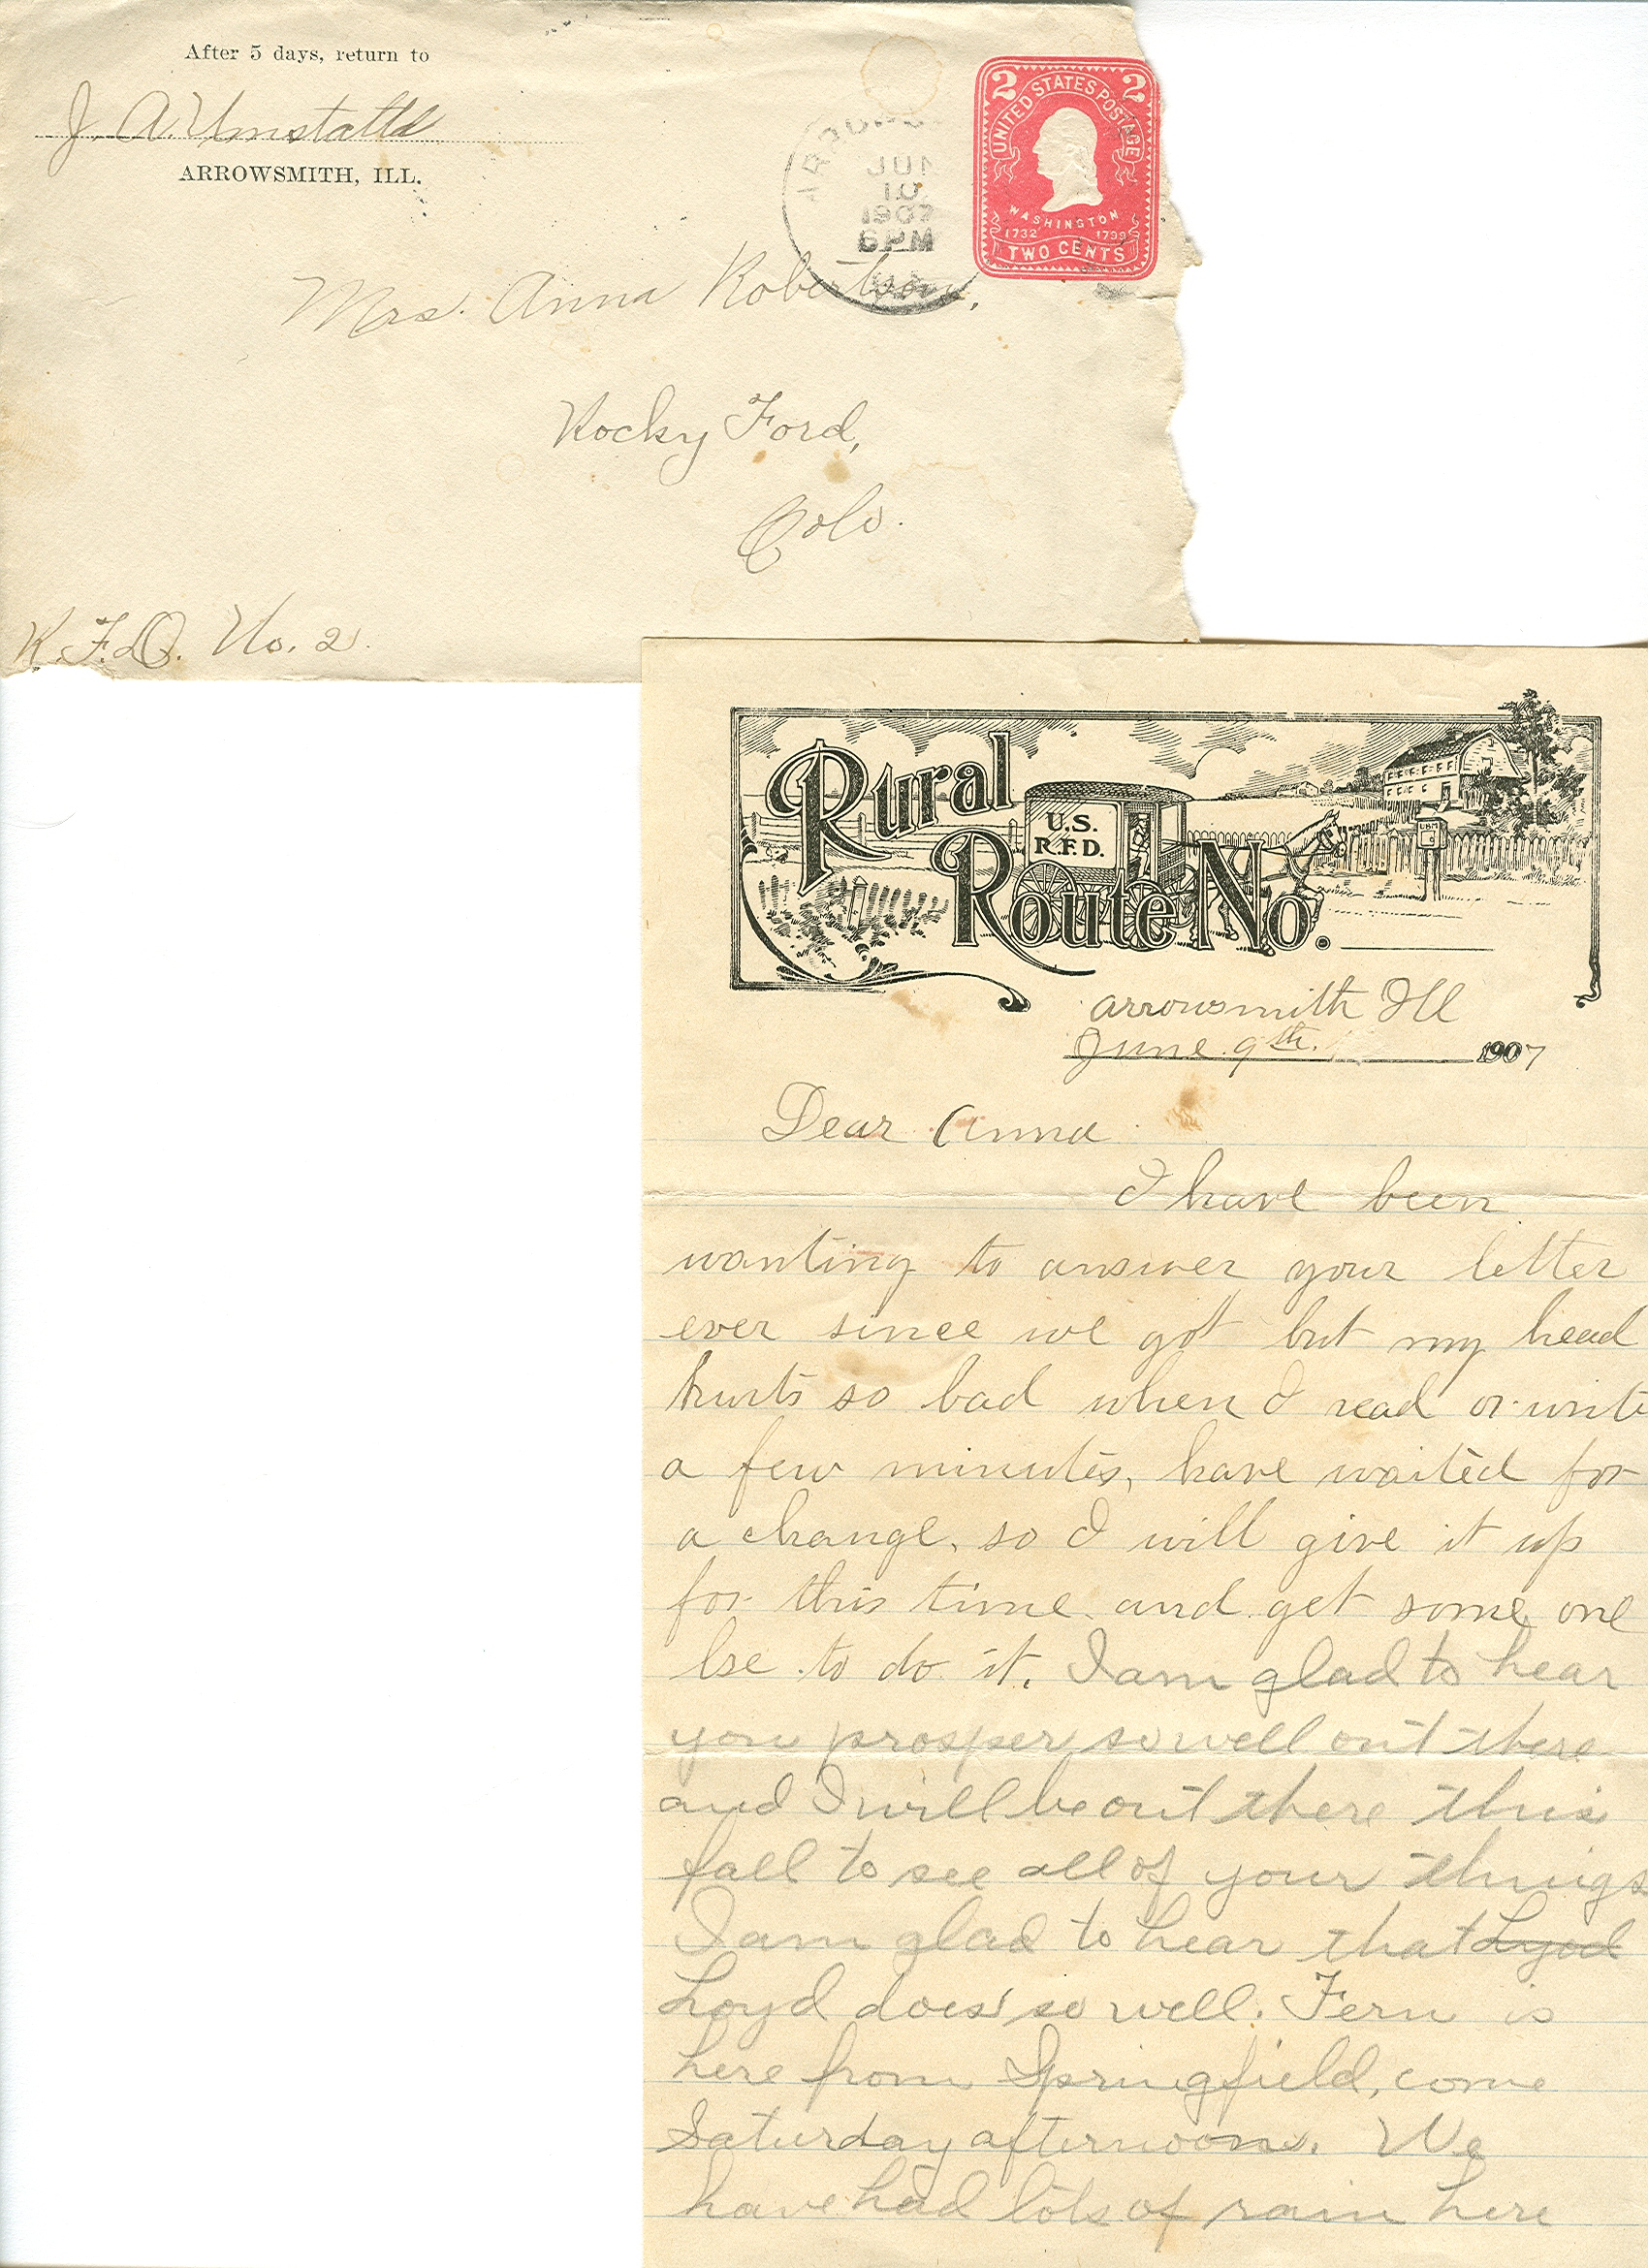 After 5 days, return to
J. A. Umstattd
ARROWSMITH, ILL.
JUN
10
1907
6 PM
2 2
UNITED STATES POSTAGE
WASHINGTON
1732 1799
TWO CENTS
Mrs. Anna Robertson,
Rocky Ford,
Colo.
R.F.D. No. 2.
Rural
U.S.
R.F.D.
Route No.
Arrowsmith Ill
June 9th. 1907
Dear Anna
I have been
wanting to answer your letter
ever since we got but my head
hurts so bad when I read or write
a few minutes, have waited for
a change, so I will give it up
for this time and get some one
lse to do it. I am glad to hear
you prosper so well out there
and I will be out there this
fall to see all of your things
I am glad to hear that Lyod
Loyd does so well. Fern is
here from Springfield, come
Saturday afternoon. We
have had lots of rain here